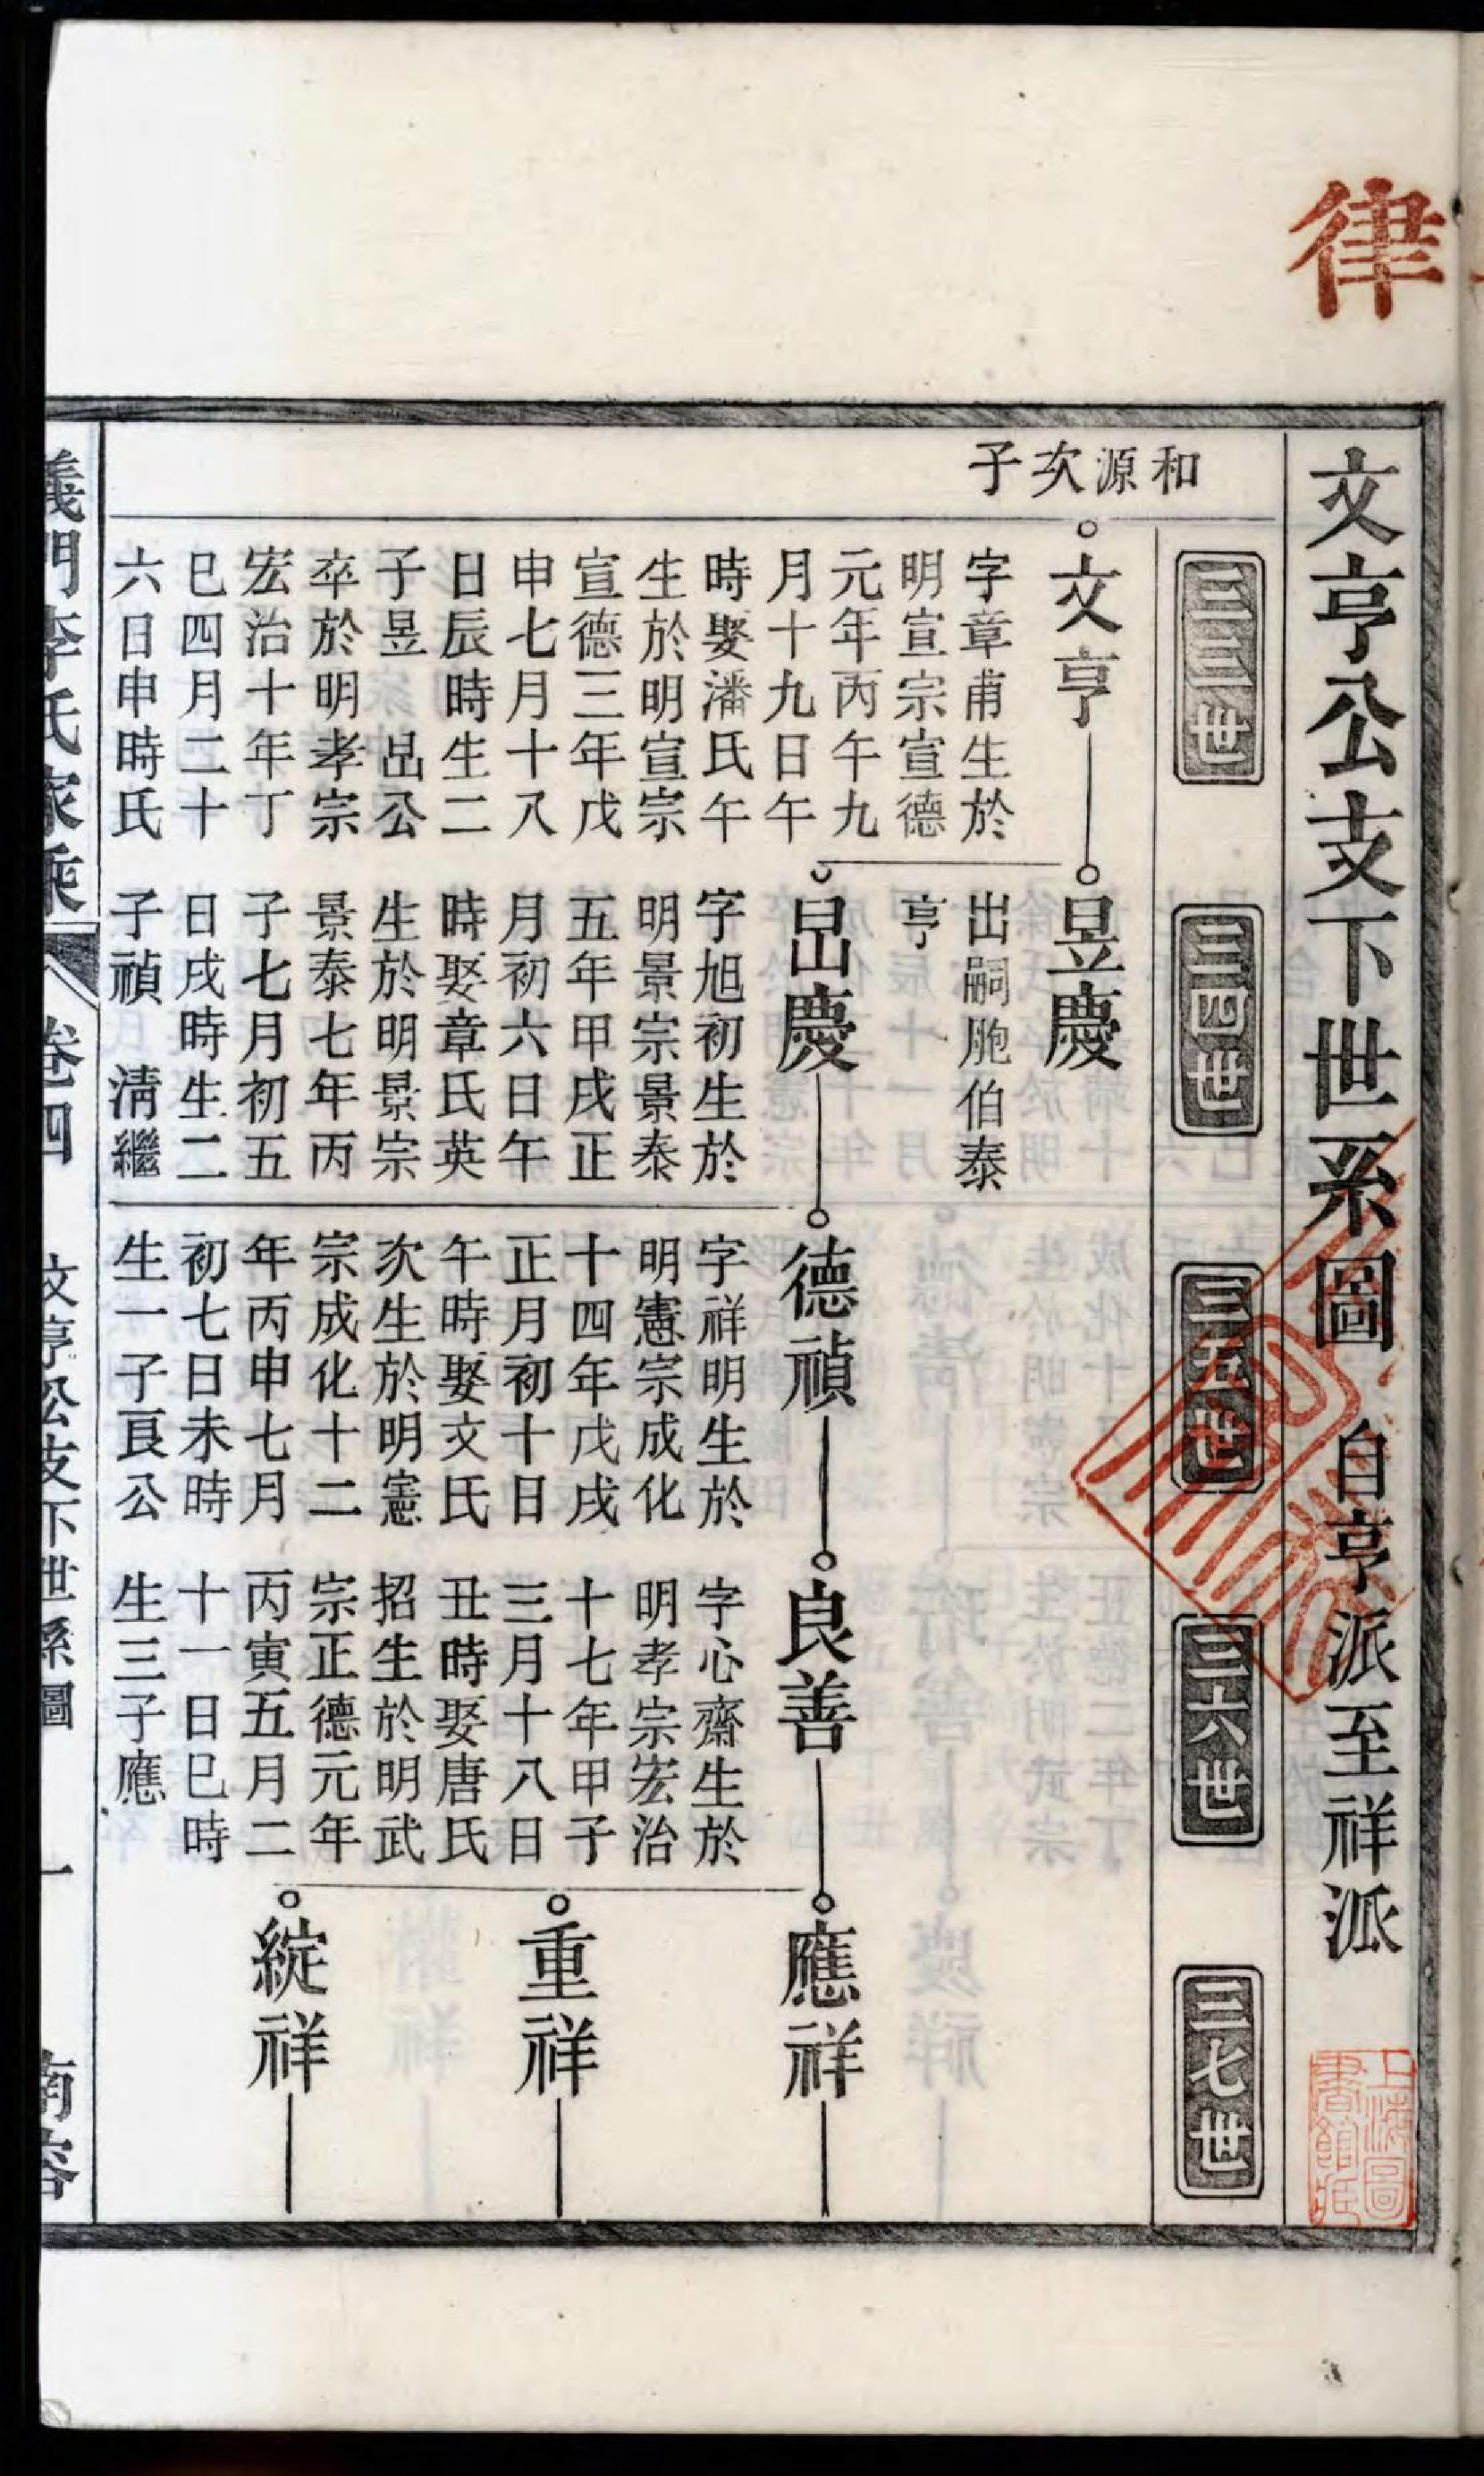 律
文亨公支下世系圖 自亨派至祥派
三三世
三四世
三五世
三六世
三七世
和源次子
文亨
字章甫生於
明宣宗宣德
元年丙午九
月十九日午
時娶潘氏午
生於明宣宗
宣德三年戊
申七月十八
日辰時生二
子昱 旵公
卒於明孝宗
宏治十年丁
巳四月二十
六日申時氏
昱慶
出嗣胞伯泰
亨
旵慶
字旭初生於
明景宗景泰
五年甲戌正
月初六日午
時娶章氏英
生於明景宗
景泰七年丙
子七月初五
日戌時生二
子禎 清繼
德禎
字祥明生於
明憲宗成化
十四年戊戌
正月初十日
午時娶文氏
次生於明憲
宗成化十二
年丙申七月
初七日未時
生一子良公
良善
字心齋生於
明孝宗宏治
十七年甲子
三月十八日
丑時娶唐氏
招生於明武
宗正德元年
丙寅五月二
十一日巳時
生三子應
應祥
重祥
綻祥
義門李氏家乘 卷四 文亨公支下世系圖 一 南容
上海圖書館藏